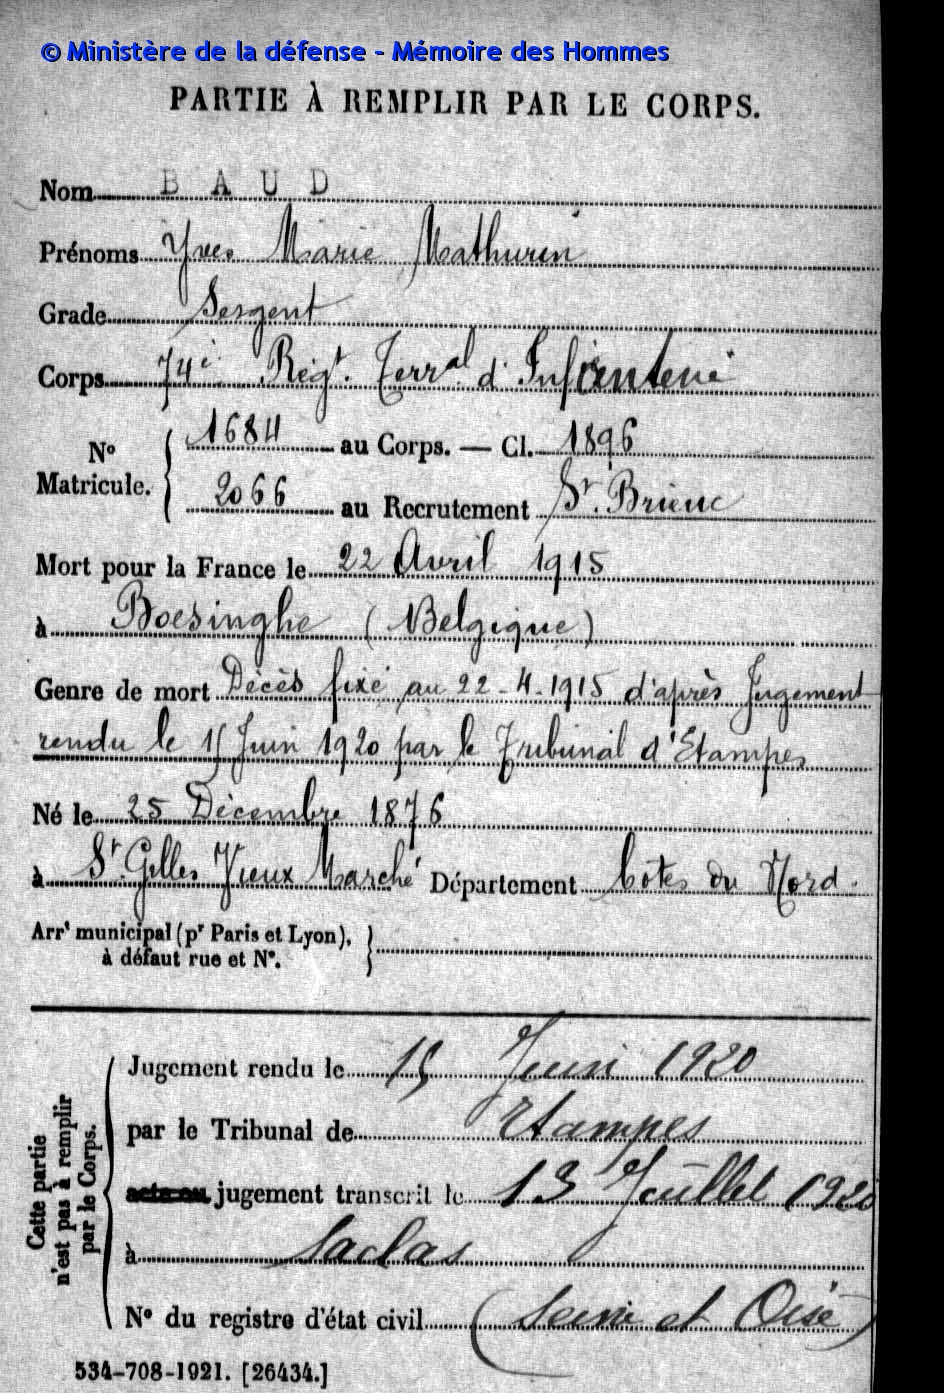 © Ministère de la défense - Mémoire des Hommes
PARTIE À REMPLIR PAR LE CORPS.
Nom BAUD
Prénoms Yves Marie Mathurin
Grade Sergent
Corps 74e Régt. Terral d'Infanterie
No Matricule. { 1684 au Corps. — Cl. 1896
2066 au Recrutement St. Brieuc
Mort pour la France le 22 Avril 1915
à Boesinghe (Belgique)
Genre de mort Décès fixé au 22-4-1915 d'après Jugement
rendu le 15 Juin 1920 par le Tribunal d'Etampes
Né le 25 Décembre 1876
à St. Gilles Vieux Marché Département Côtes du Nord.
Arrt municipal (pr Paris et Lyon),
à défaut rue et No. }
Cette partie
n'est pas à remplir
par le Corps. {
Jugement rendu le 15 Juin 1920
par le Tribunal de Etampes
acte ou jugement transcrit le 13 Juillet 1920
à Saclas
No du registre d'état civil (Seine et Oise)
534-708-1921. [26434.]